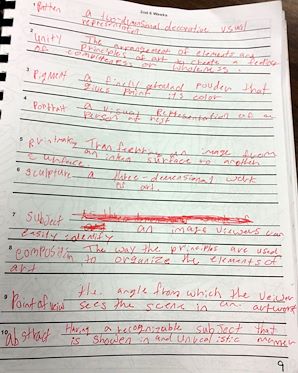 Last 6 Weeks
1 Pattern a two-dimensional decorative visual
representation
2 Unity The arrangement of elements and
principles of art to create a feeling
of completeness or wholeness.
3 Pigment a finely ground powder that
gives paint its color
4 Portrait a visual representation of a
person at rest
5 Printmaking Transferring an image from
an inked surface to another
surface
6 Sculpture a three-dimensional work
of art
7 Subject an image viewers can
easily identify
8 Composition The way the principles are used
to organize the elements of
art
9 Point of View the angle from which the veiwer
sees the scene in an artwork
10 Abstract Having a recognizable subject that
is showen in an manner
9